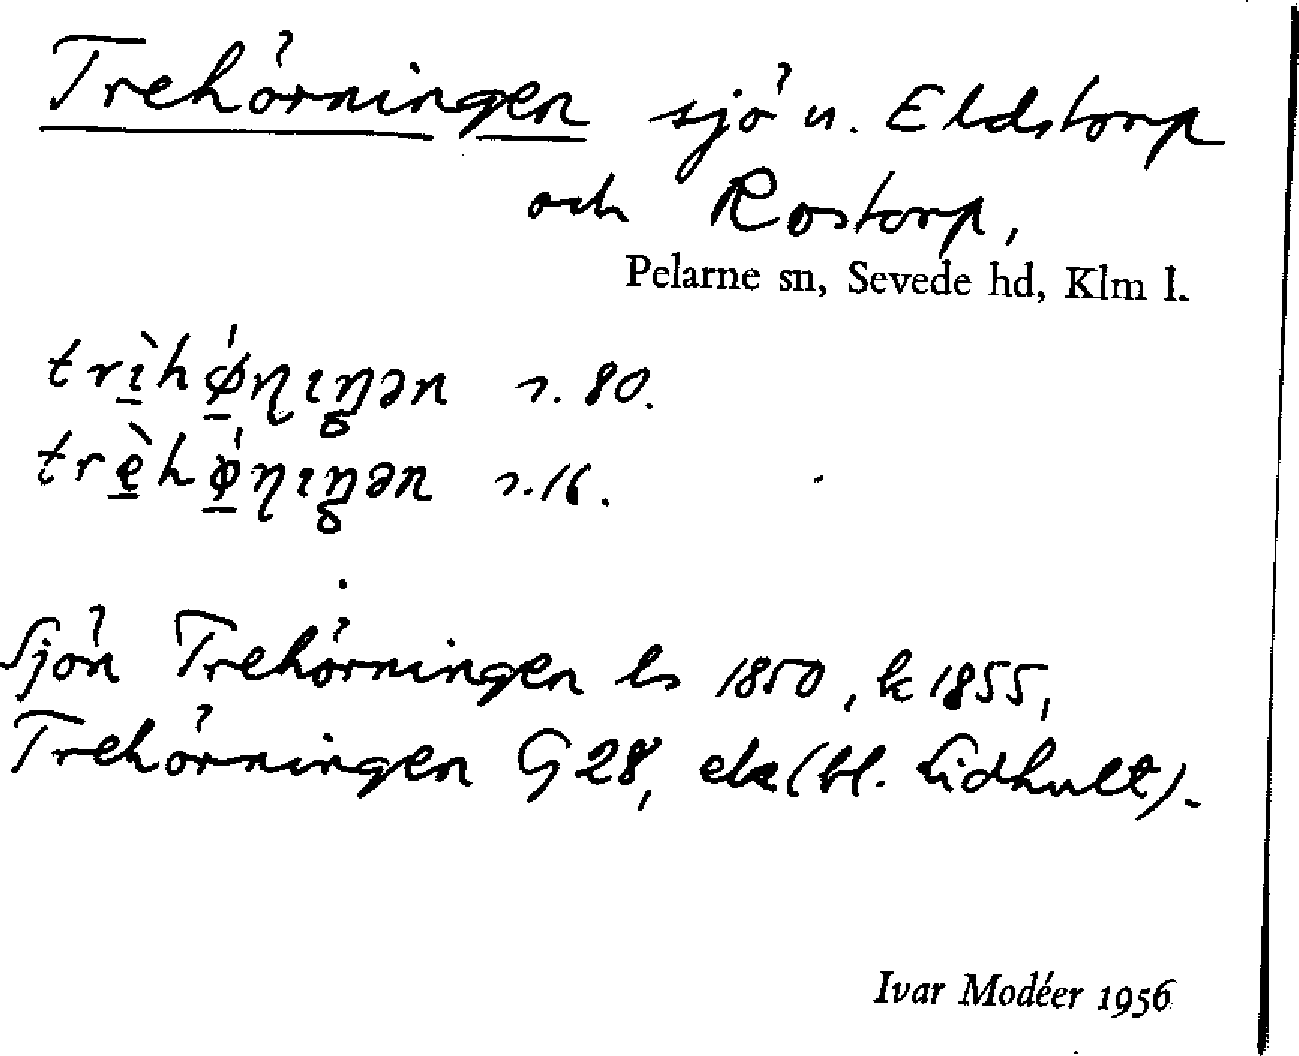 Trehörningen sjö u. Eldstorp
och Rostorp,
Pelarne sn, Sevede hd, Klm l.
trı̱̀hǿ̱ɳıŋən s. 80.
trè̱hǿ̱ɳıŋən s. 16.
Sjön Trehörningen ls 1850, k 1855,
Trehörningen G 28, ek (bl. Lidhult).
Ivar Modéer 1956